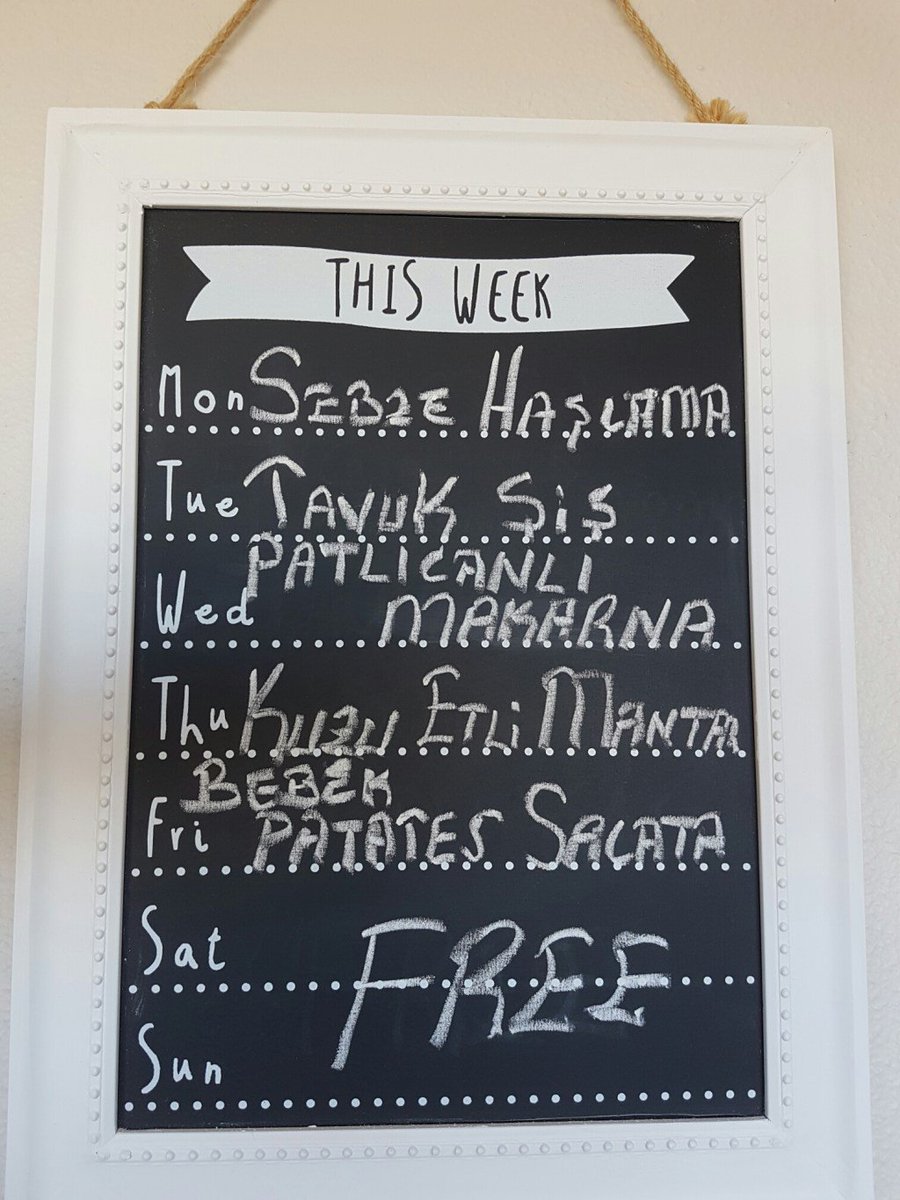 THIS WEEK
Mon SEBZE HAŞLAMA
Tue TAVUK ŞİŞ
PATLICANLI
Wed MAKARNA
Thu KUZU ETLİ MANTAR
BEBEK
Fri PATATES SALATA
Sat FREE
Sun